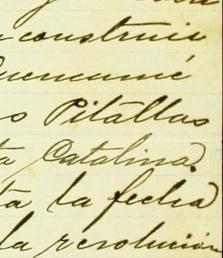 construis
Quencamé
o Pitallas
ta Catalina
ta la fecha
la resolución